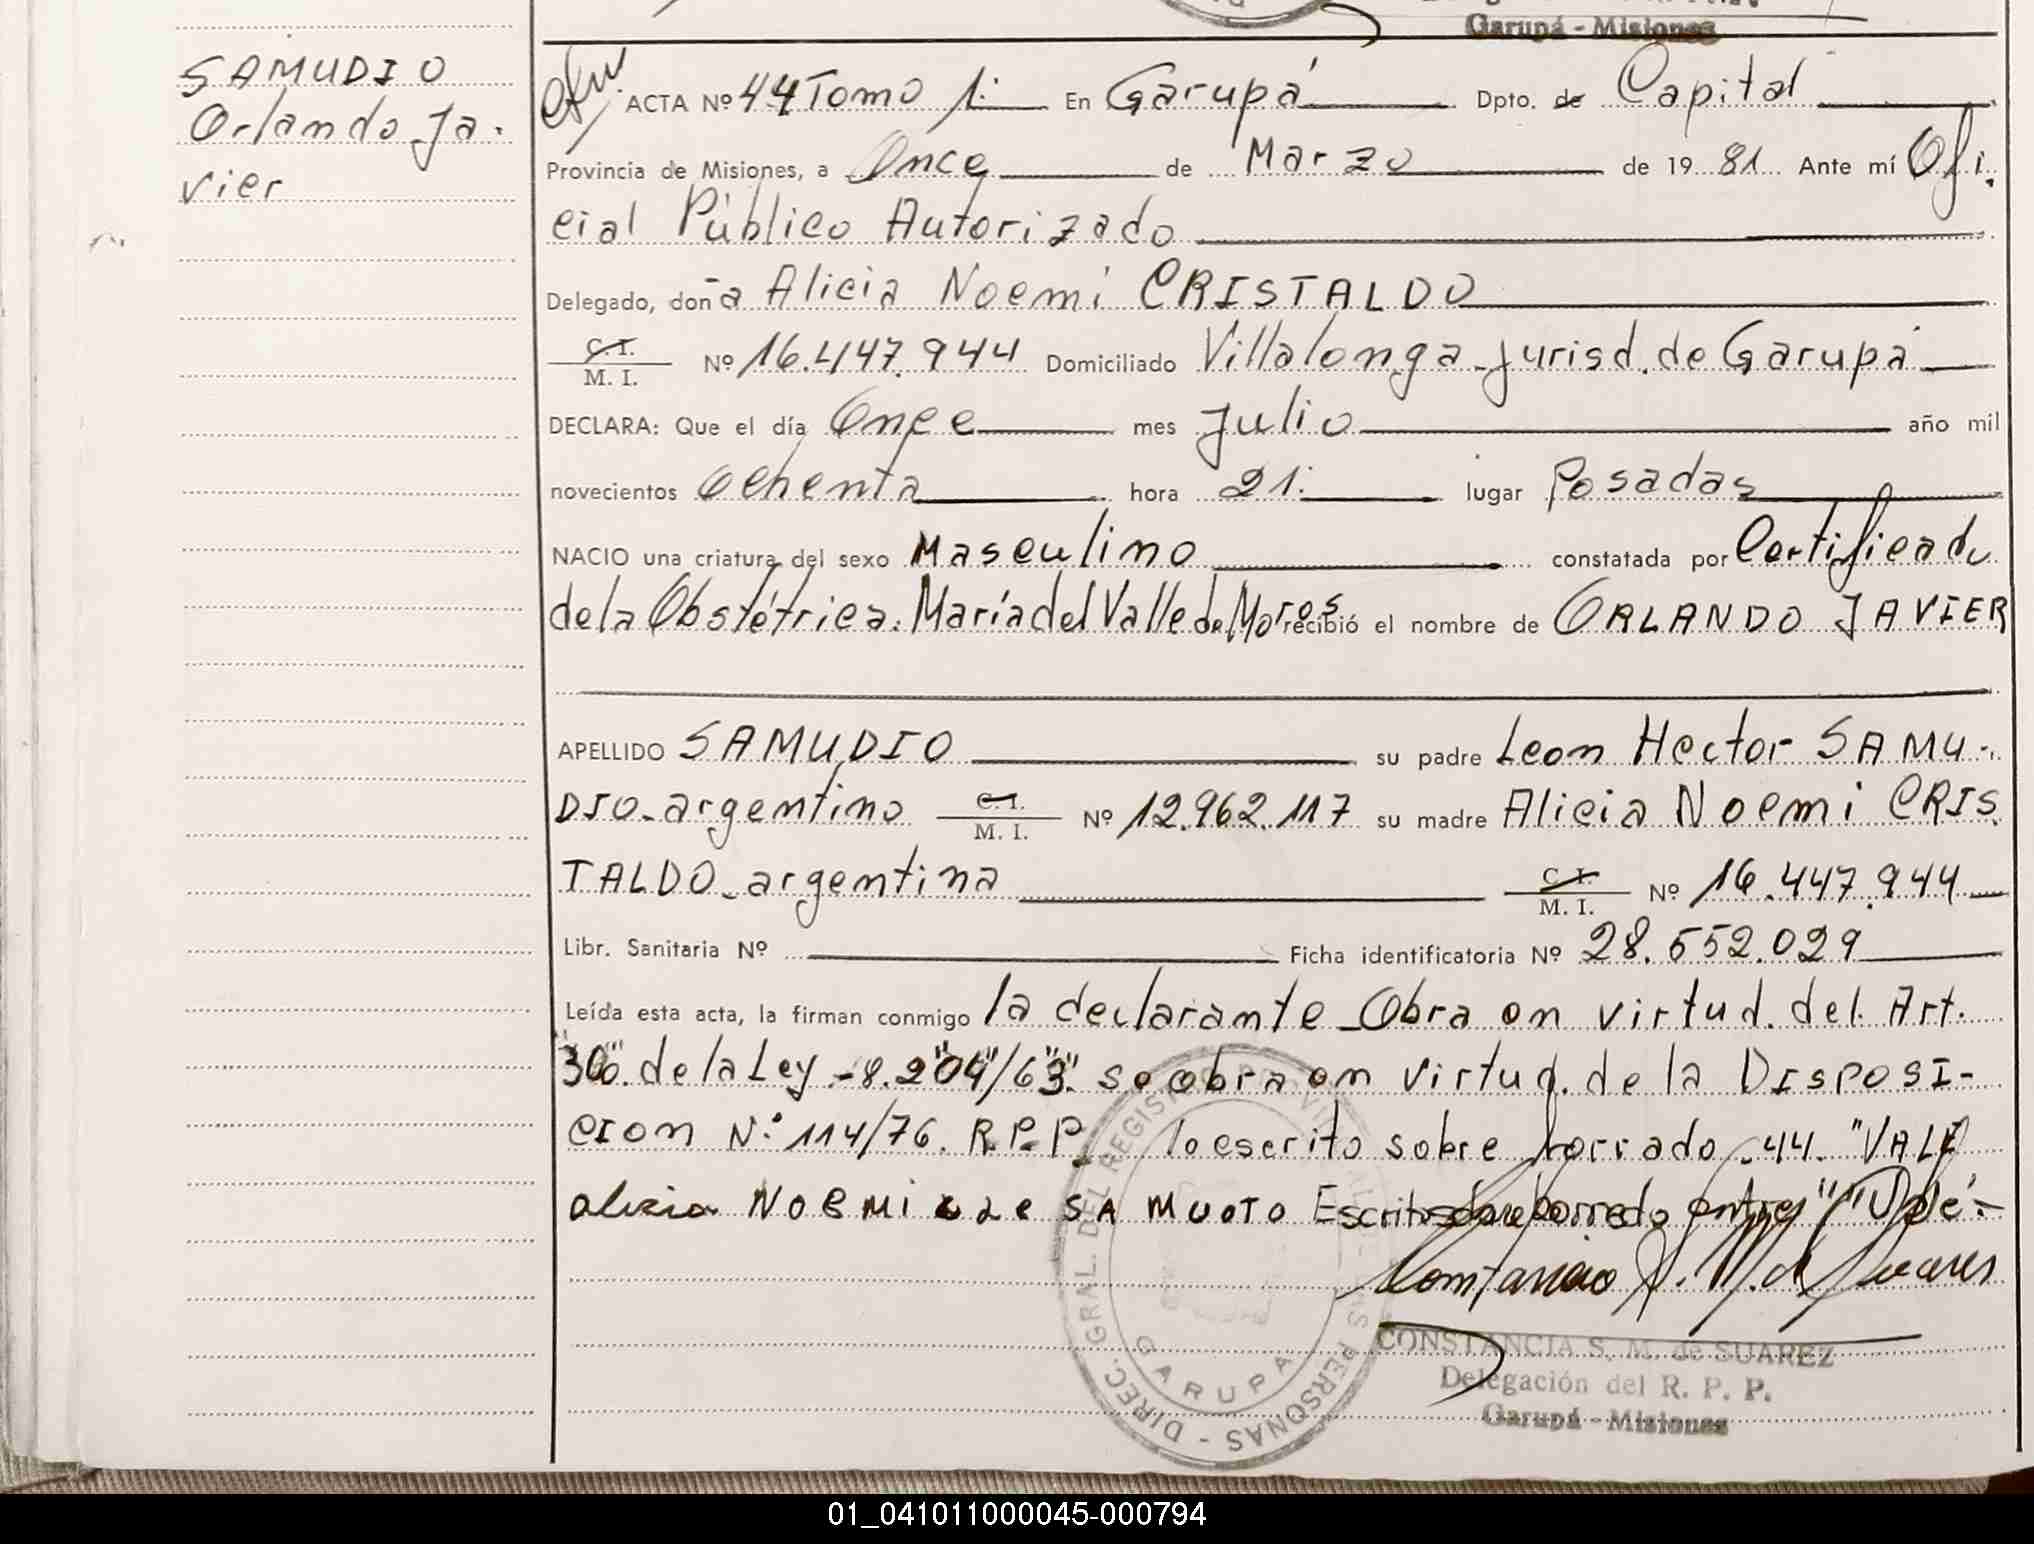 Garupá - Misiones
SAMUDIO
Orlando Ja-
vier
ACTA Nº 44 Tomo 1: En Garupá Dpto. de Capital
Provincia de Misiones, a Once de Marzo de 1981 Ante mí Ofi.
cial Público Autorizado
Delegado, don-a Alicia Noemi CRISTALDO
C.I.
M. I. Nº 16.447.944 Domiciliado Villalonga-jurisd. de Garupá
DECLARA: Que el día Once mes Julio año mil
novecientos Ochenta hora 21: lugar Posadas
NACIO una criatura del sexo Masculino constatada por Certificado
de la Obstétrica. María del Valle de Mores recibió el nombre de ORLANDO JAVIER
APELLIDO SAMUDIO su padre Leon Hector SAMU-
DIO-argentino C.I. M. I. Nº 12.962.117 su madre Alicia Noemi CRIS
TALDO-argentina C.I. M. I. Nº 16.447.944
Libr. Sanitaria Nº Ficha identificatoria Nº 28.552.029
Leída esta acta, la firman conmigo la declarante-Obra en virtud. del Art.
"30". de la Ley-8.2"04"/6"3". se obra en virtud. de la DISPOSI-
CION N° 114/76. R.P.P. lo escrito sobre borrado-44. "VALE
alicia NOEMI de SAMUDIO Escrito sobre borrado entre " "Vale-
Constancia S. M. de Suarez
CONSTANCIA S. M. de SUAREZ
Delegación del R. P. P.
Garupá - Misiones
DIREC. GRAL. DEL REGISTRO PERSONAS
GARUPA
01_041011000045-000794